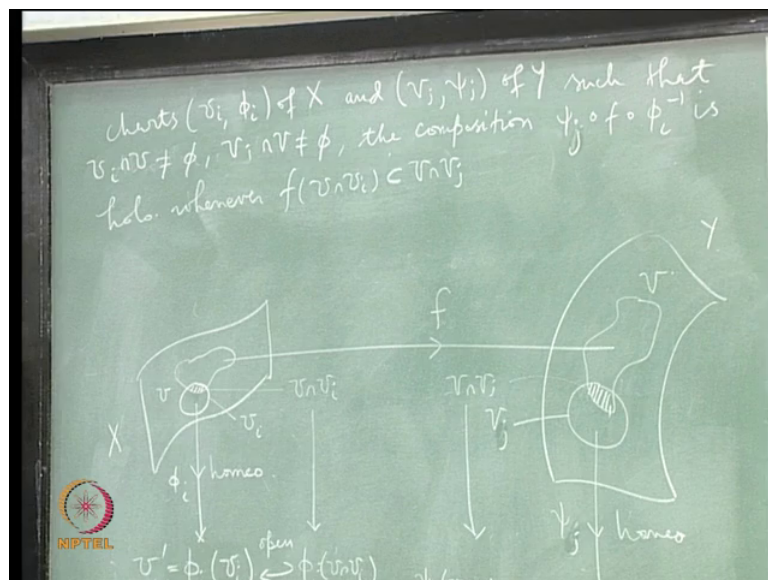 charts (U_i, φ_i) of X and (V_j, ψ_j) of Y such that
U_i ∩ U ≠ φ, V_j ∩ V ≠ φ, the composition ψ_j ∘ f ∘ φ_i^{-1} is
holo. whenever f(U ∩ U_i) ⊂ V ∩ V_j
Y
V
f
U
U ∩ U_i
V ∩ V_j
U_i
V_j
X
φ_i
homeo
ψ_j
homeo
open
U' = φ_i(U_i) ↩ φ_i(U ∩ U_i)
NPTEL